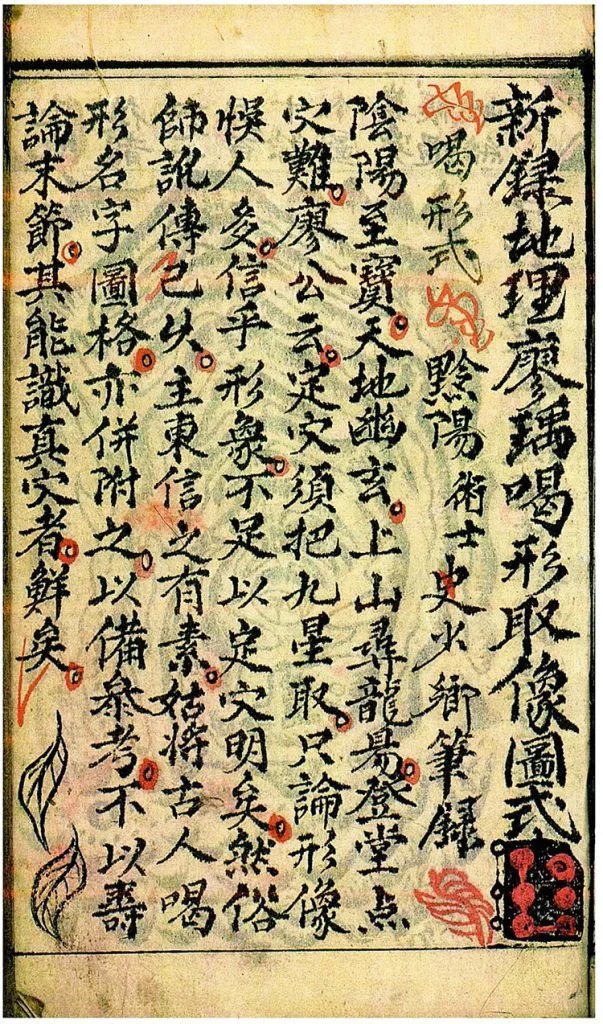 新錄地理廖瑀喝形取像圖式
喝形式 黔陽術士史火鄉筆錄
陰陽至寶天地幽玄上山尋龍易登堂点
穴難廖公云定穴須把九星取只論形像
悮人多信乎形象不足以定穴明矣然俗
師訛傳已久主東信之有素姑将古人喝
形名字圖格亦併附之以備叅考不以壽
論末節其能識真穴者鮮矣